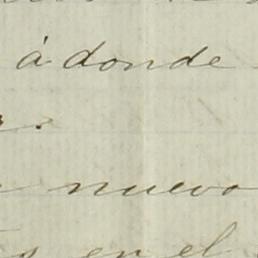 á donde
nuevo
en el